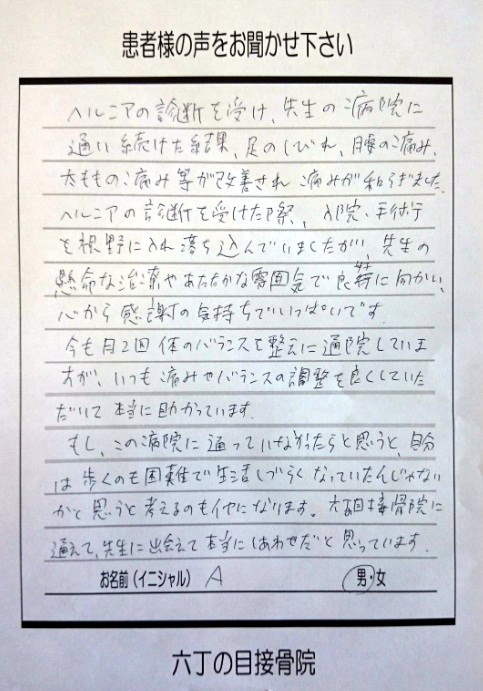 患者様の声をお聞かせ下さい
ヘルニアの診断を受け、先生の病院に
通い続けた結果、足のしびれ、腰の痛み、
太ももの痛み等が改善され痛みが和らぎました。
ヘルニアの診断を受けた際、入院・手術
を視野に入れ落ち込んでいましたが、先生の
懸命な治療やあたたかな雰囲気で良好に向かい、
心から感謝の気持ちでいっぱいです。
今も月2回体のバランスを整えに通院していま
すが、いつも痛みやバランスの調整を良くしていた
だいて本当に助かっています。
もし、この病院に通っていなかったらと思うと、自分
は歩くのも困難で生活しづらくなっていたんじゃない
かと思うと考えるのもイヤになります。六丁の目接骨院に
通えて、先生に出会えて本当にしあわせだと思っています。
お名前(イニシャル) A 男・女
六丁の目接骨院